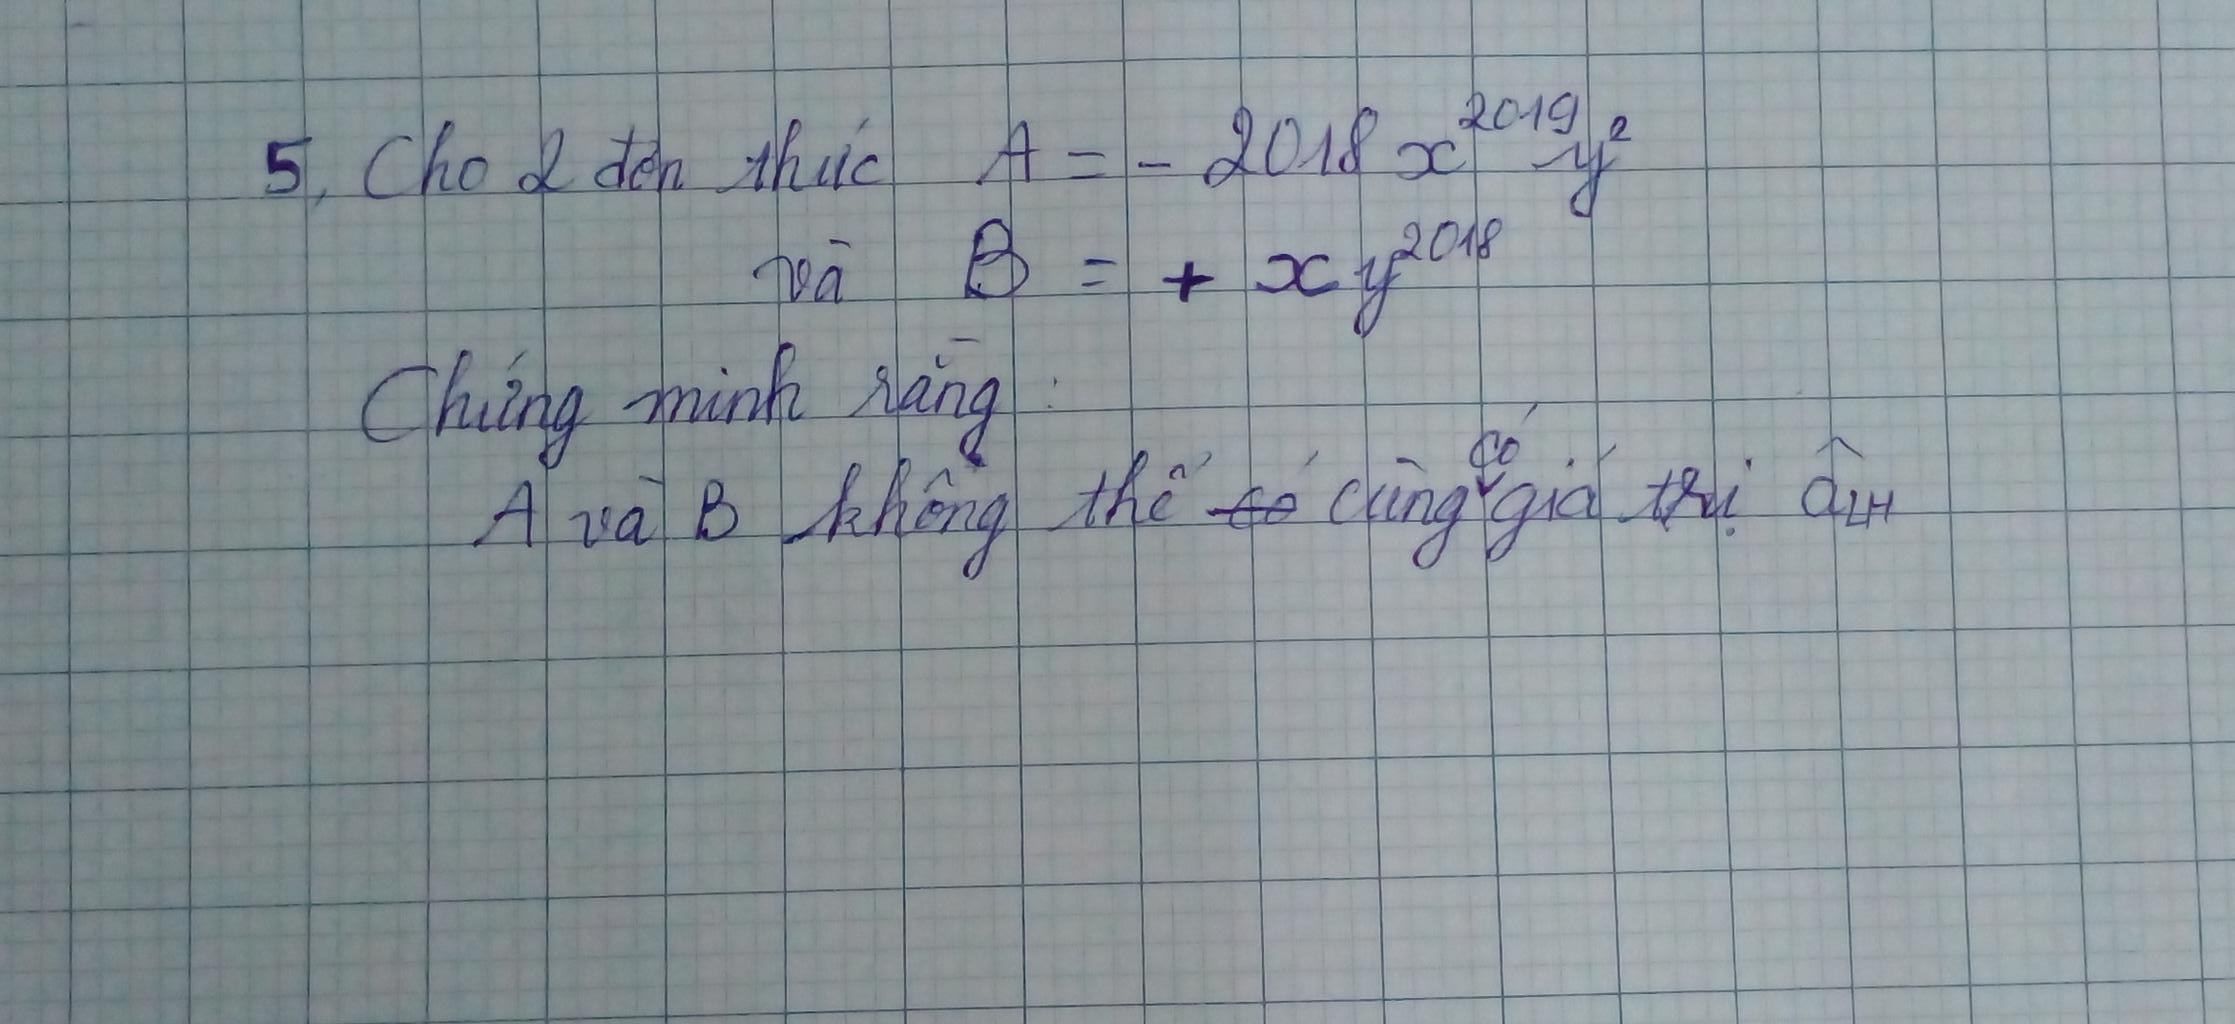 5, Cho 2 đơn thức A = - 2018 x²⁰¹⁹ y²
và B = + x y²⁰¹⁸
Chứng minh rằng :
A và B không thể có cùng có giá trị âm